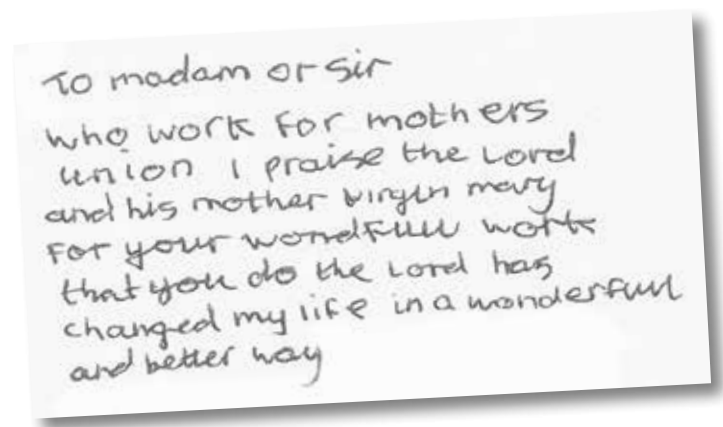 To madam or sir
who work for mothers
union I praise the Lord
and his mother virgin mary
For your wondfull work
that you do the Lord has
changed my life in a wonderfull
and better way